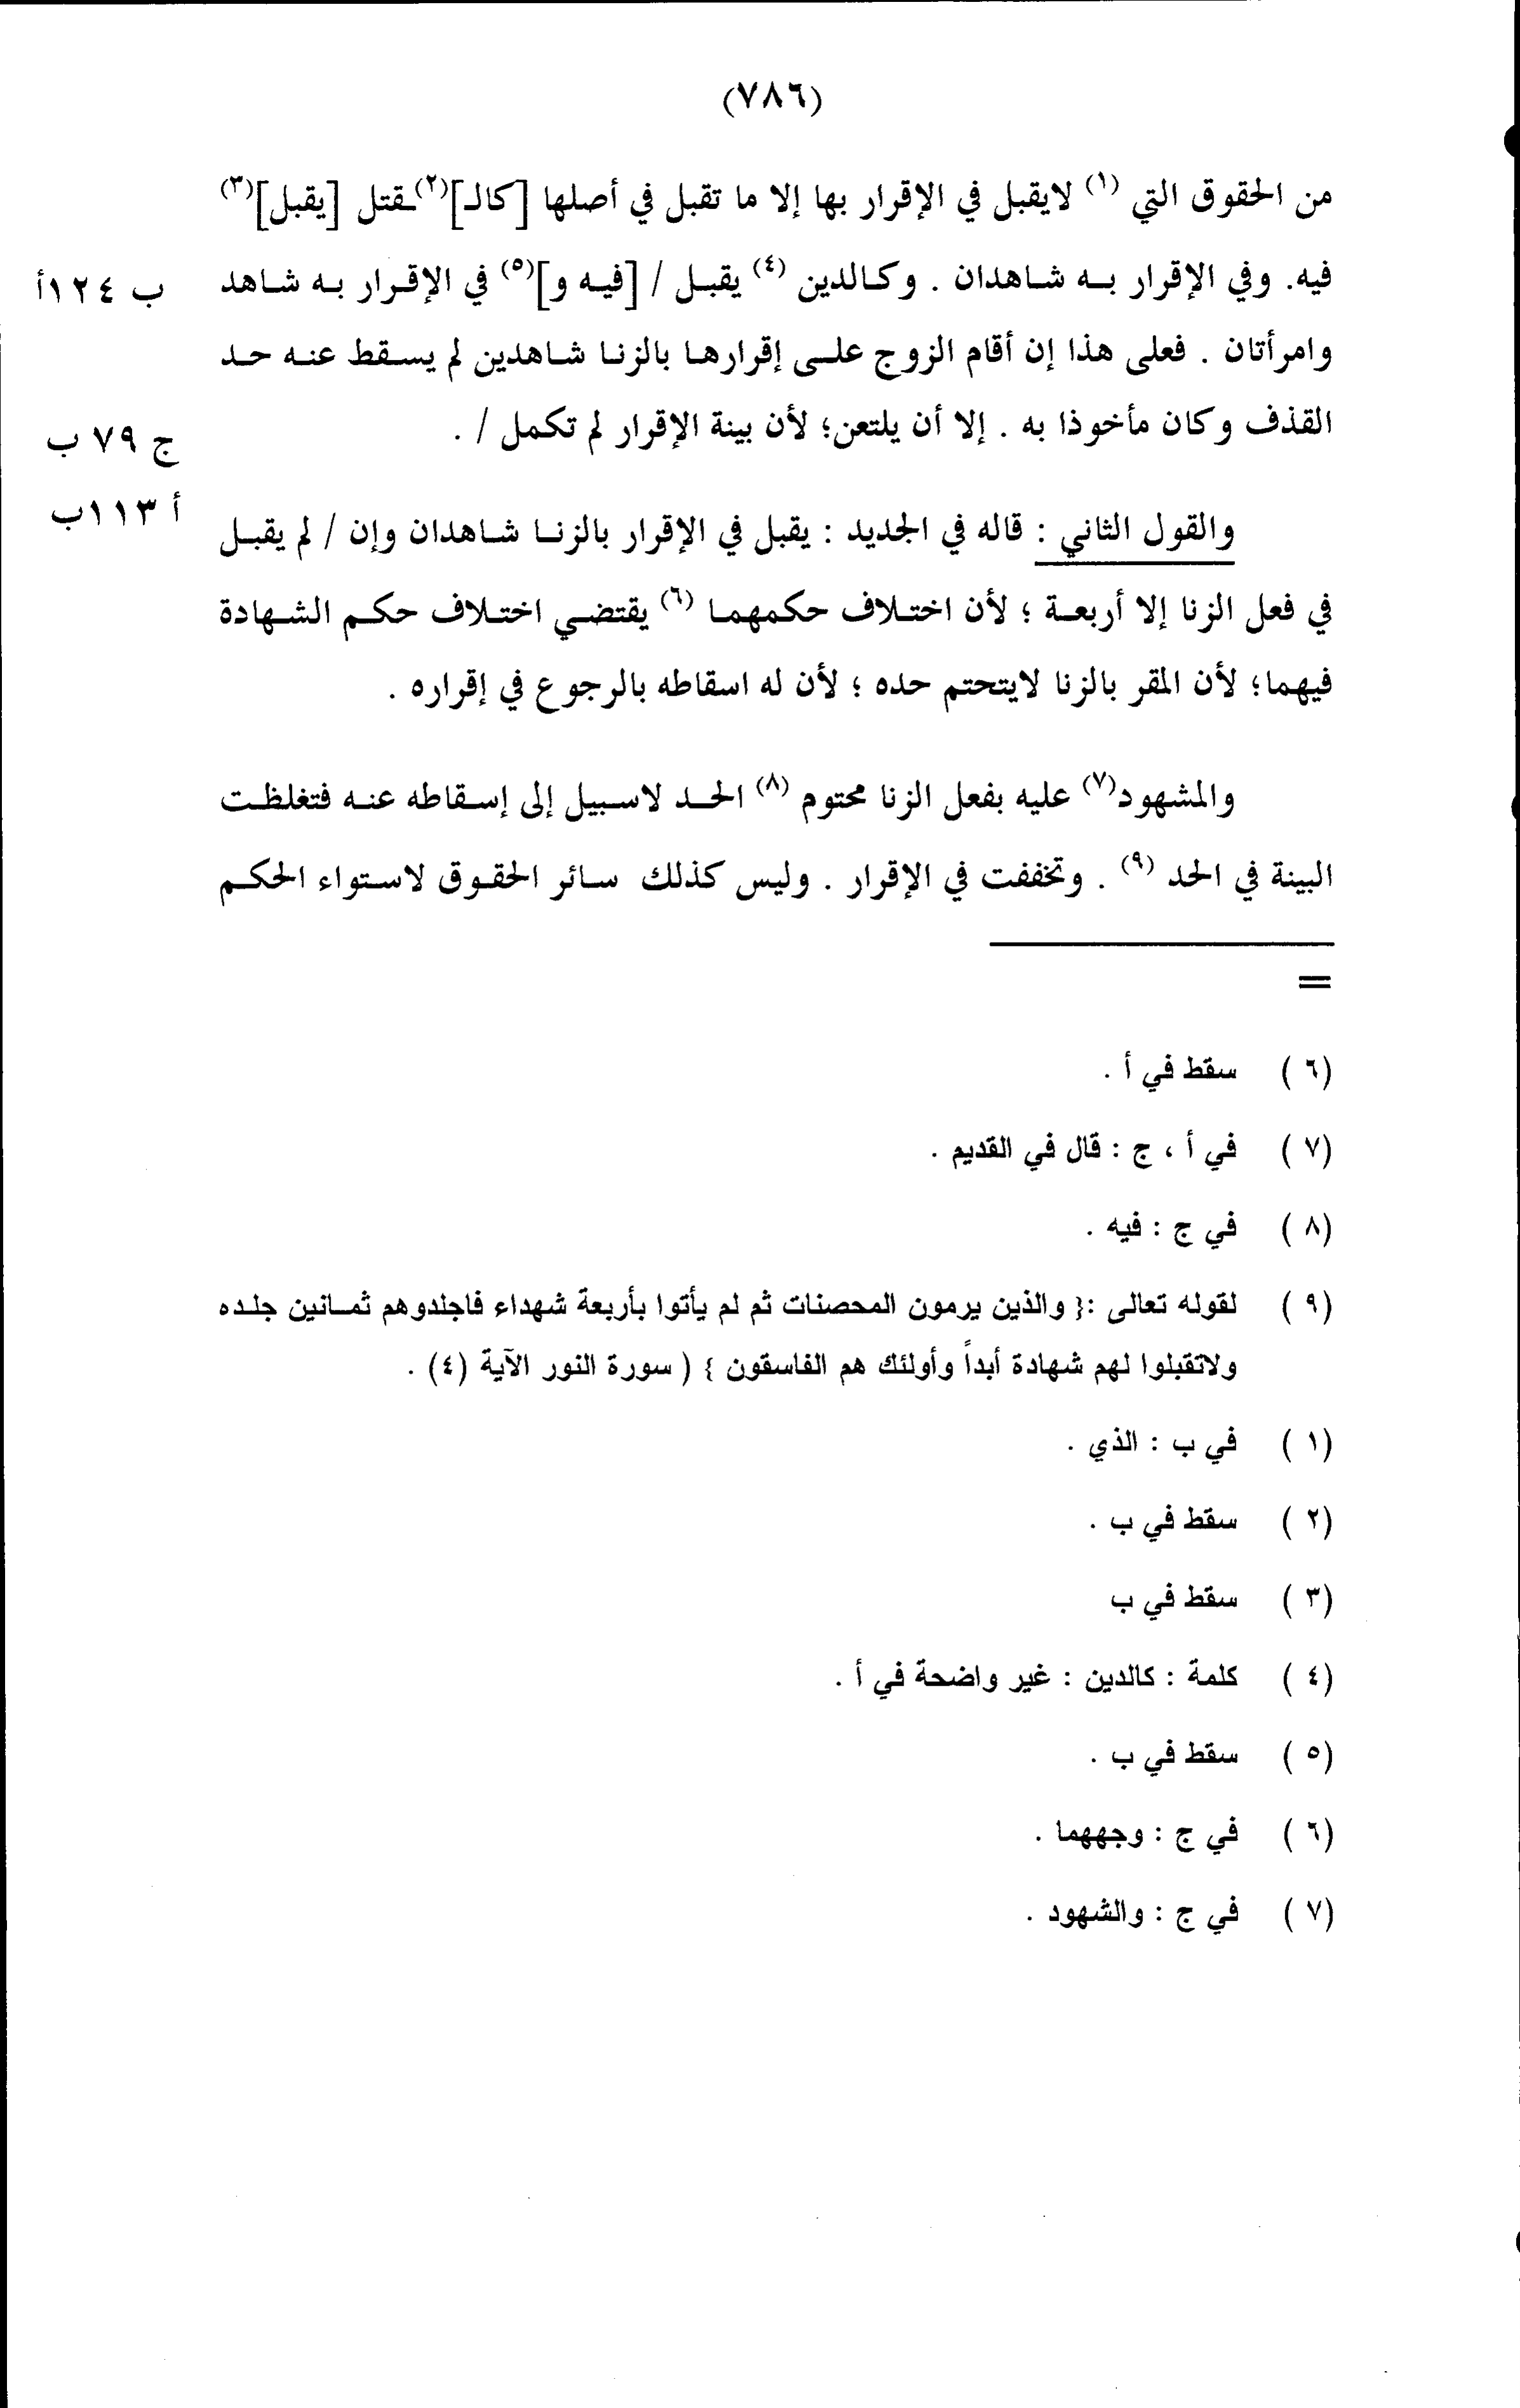 (٧٨٦)
من الحقوق التي (١) لايقبل في الإقرار بها إلا ما تقبل في أصلها [كالـ](٢)ـقتل [يقبل](٣)
فيه. وفي الإقرار بـه شـاهدان . وكـالدين (٤) يقبـل / [فيـه و](٥) في الإقـرار بـه شـاهد
ب ١٢٤أ
وامرأتان . فعلى هذا إن أقام الزوج علـى إقرارهـا بالزنـا شـاهدين لم يسـقط عنـه حـد
القذف وكان مأخوذا به . إلا أن يلتعن؛ لأن بينة الإقرار لم تكمل / .
ج ٧٩ ب
أ ١١٣ب
والقول الثاني : قاله في الجديد : يقبل في الإقرار بالزنـا شـاهدان وإن / لم يقبـل
في فعل الزنا إلا أربعـة ؛ لأن اختـلاف حكمهمـا (٦) يقتضـي اختـلاف حكـم الشـهادة
فيهما؛ لأن المقر بالزنا لايتحتم حده ؛ لأن له اسقاطه بالرجوع في إقراره .
والمشهود(٧) عليه بفعل الزنا محتوم (٨) الحـد لاسـبيل إلى إسـقاطه عنـه فتغلظـت
البينة في الحد (٩) . وتخففت في الإقرار . وليس كذلك سـائر الحقـوق لاسـتواء الحكـم
=
(٦) سقط في أ .
(٧) في أ ، ج : قال في القديم .
(٨) في ج : فيه .
(٩) لقوله تعالى :{ والذين يرمون المحصنات ثم لم يأتوا بأربعة شهداء فاجلدوهم ثمـانين جلـده
ولاتقبلوا لهم شهادة أبداً وأولئك هم الفاسقون } ( سورة النور الآية (٤) .
(١) في ب : الذي .
(٢) سقط في ب .
(٣) سقط في ب
(٤) كلمة : كالدين : غير واضحة في أ .
(٥) سقط في ب .
(٦) في ج : وجههما .
(٧) في ج : والشهود .